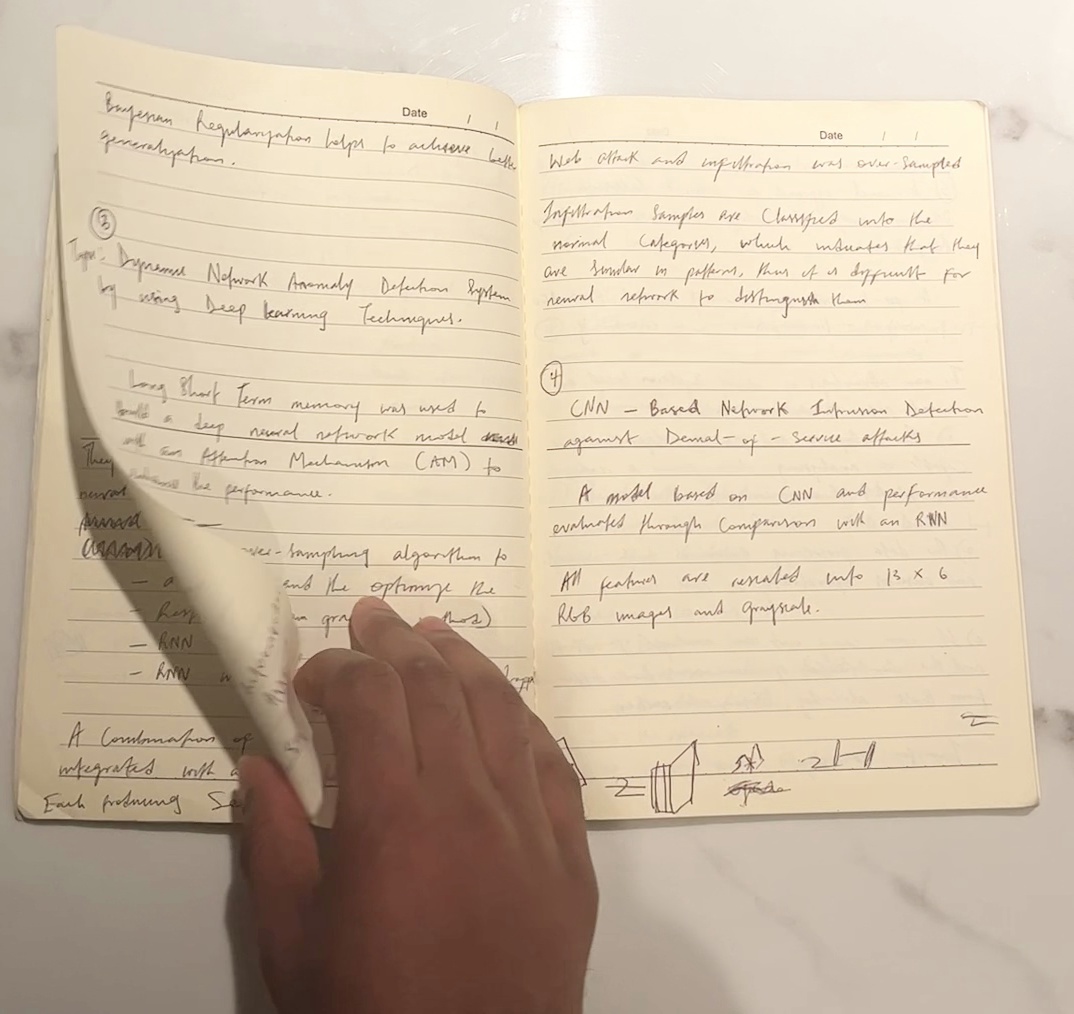 Date / /
Bayesian Regularization helps to achieve better
generalization.
3
Topic: Dynamic Network Anomaly Detection System
by using Deep learning Techniques.
Long Short Term memory was used to
build a deep neural network model
an Attention Mechanism (AM) to
They the performance.
neural
over-sampling algorithm to
- and the optimize the
-
- RNN
- RNN
A Combination of
integrated with
Each
Date / /
Web attack and infiltration was over-sampled
Infiltration Samples are Classified into the
normal Categories, which indicates that they
are similar in patterns, thus it is difficult for
neural network to distinguish them
4
CNN - Based Network Intrusion Detection
against Denial-of-service attacks
A model based on CNN and performance
evaluated through Comparison with an RNN
All features are rescaled into 13 x 6
RGB images and grayscale.